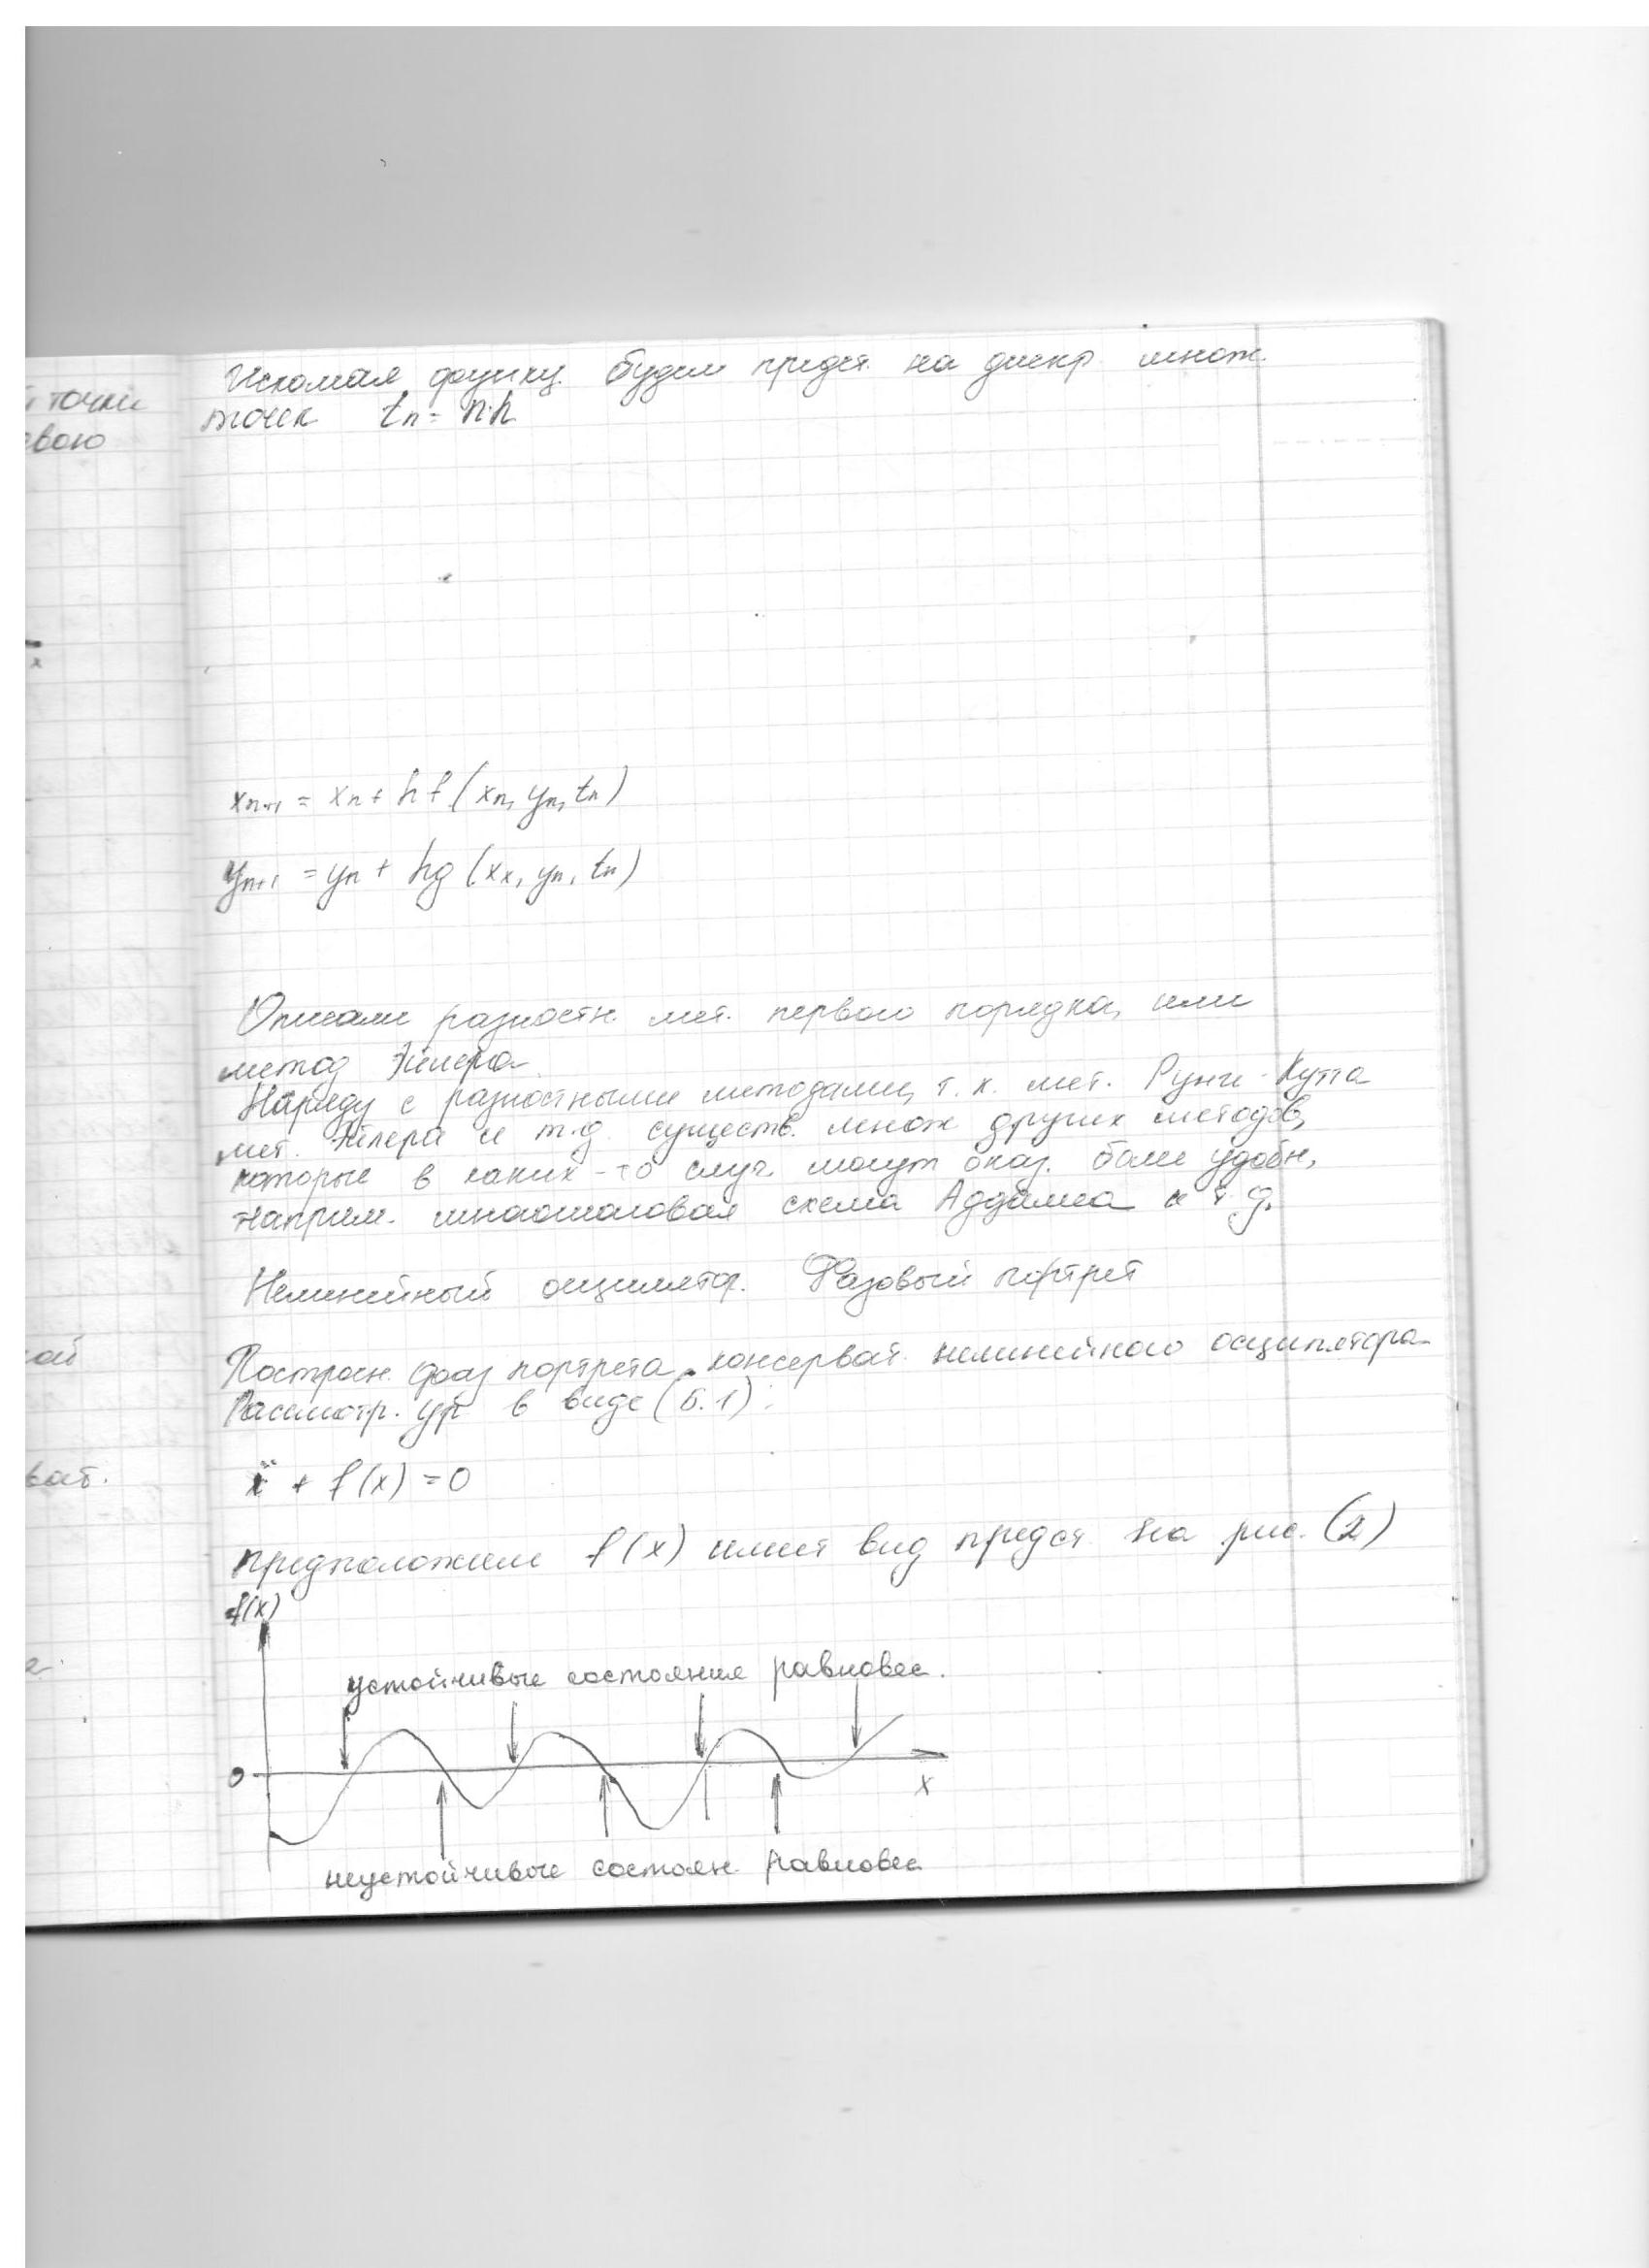 й точки
евою
x
ой
ват.
Искомая функц. будем предст. на дискр. множ.
точек tn = n·h
xn+1 = xn + hf(xn, yn, tn)
yn+1 = yn + hg(xn, yn, tn)
Описали разностн. мет. первого порядка, или
метод Эйлера.
Наряду с разностными методами, т. к. мет. Рунге-Кутта
мет. Эйлера и т.д. существ. множ других методов,
которые в каких-то случ. могут оказ. более удобн,
наприм. многошаговая схема Аддамса и т.д.
Нелинейный осциллятор. Фазовый портрет
Построен. фаз портрета консерват. нелинейного осциллятора
Рассмотр. ур в виде (6.1):
ẍ + f(x) = 0
предположим f(x) имеет вид предст на рис. (2)
f(x)
устойчивые состояние равновес.
0
x
неустойчивые состоян. равновес